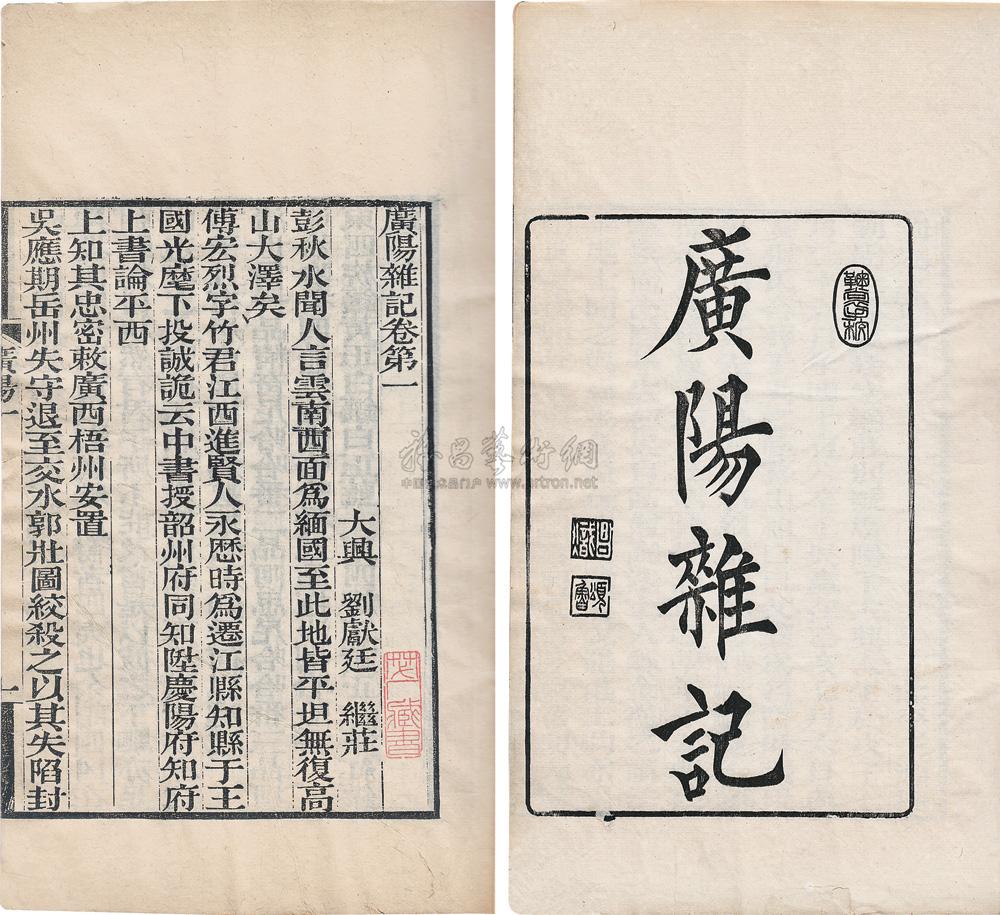 廣陽雜記
廣陽雜記卷第一
大興 劉獻廷 繼莊
彭秋水聞人言雲南西面爲緬國至此地皆平坦無復高
山大澤矣
傅宏烈字竹君江西進賢人永歷時爲遷江縣知縣于王
國光麾下投誠詭云中書授韶州府同知陞慶陽府知府
上書論平西
上知其忠密敕廣西梧州安置
吳應期岳州失守退至交水郭壯圖絞殺之以其失陷封
廣陽一
一
中国艺术品门户 www.artron.net